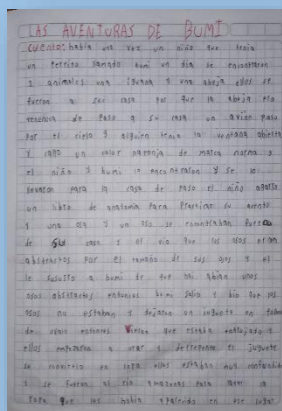 LAS AVENTURAS DE BUMI
cuento: había una vez un niño que tenia
un perrito llamado bumi un dia se encontraron
2 animales una iguana y una abeja ellos se
fueron a su casa por que la abeja era
vecina de paso a su casa un avion paso
por el cielo y alguien tenia la ventana abierta
y callo un valor naranja de marca norma y
el niño y bumi lo encontraron y se lo
llevaron para la casa de paso el niño agarro
un libro de anatomia para practicar su
y una osa y un oso se encontraban
de su casa y el vio que los osos eran
abstractos por el tamaño de sus ojos y el
le susurro a bumi de que hai abian unos
osos abstractos entonces bumi salio y bio que los
osos no estaban y dejaron un juguete en forma
de entonces que estaba y
ellos empezaron a y derrepente el juguete
se convirtio en estaban muy
y se fueron al rio amazonas para
que los habia en ese lugar